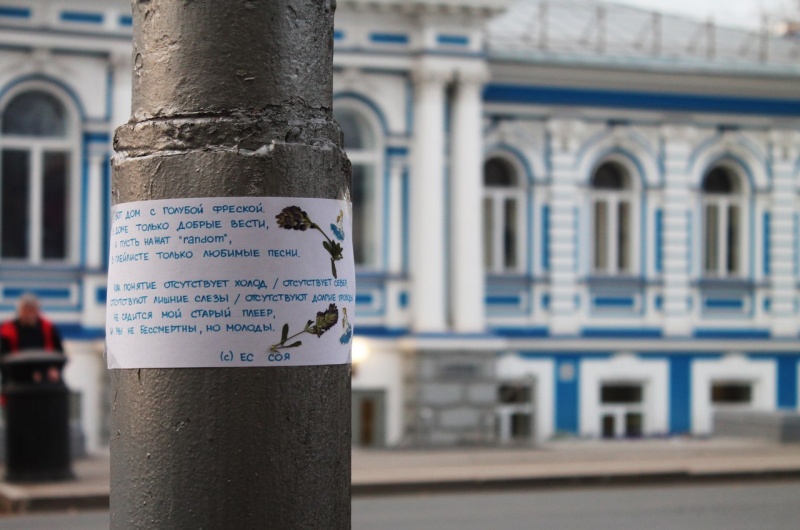 ВОТ ДОМ С ГОЛУБОЙ ФРЕСКОЙ.
В ДОМЕ ТОЛЬКО ДОБРЫЕ ВЕСТИ,
И ПУСТЬ НАЖАТ "random",
В ПЛЕЙЛИСТЕ ТОЛЬКО ЛЮБИМЫЕ ПЕСНИ.
КАК ПОНЯТИЕ ОТСУТСТВУЕТ ХОЛОД / ОТСУТСТВУЕТ СЕВЕР
ОТСУТСТВУЮТ ЛИШНИЕ СЛЕЗЫ / ОТСУТСТВУЮТ ДОЛГИЕ ПРОВОДЫ
НЕ САДИТСЯ МОЙ СТАРЫЙ ПЛЕЕР,
И МЫ НЕ БЕССМЕРТНЫ, НО МОЛОДЫ.
(с) ЕС СОЯ